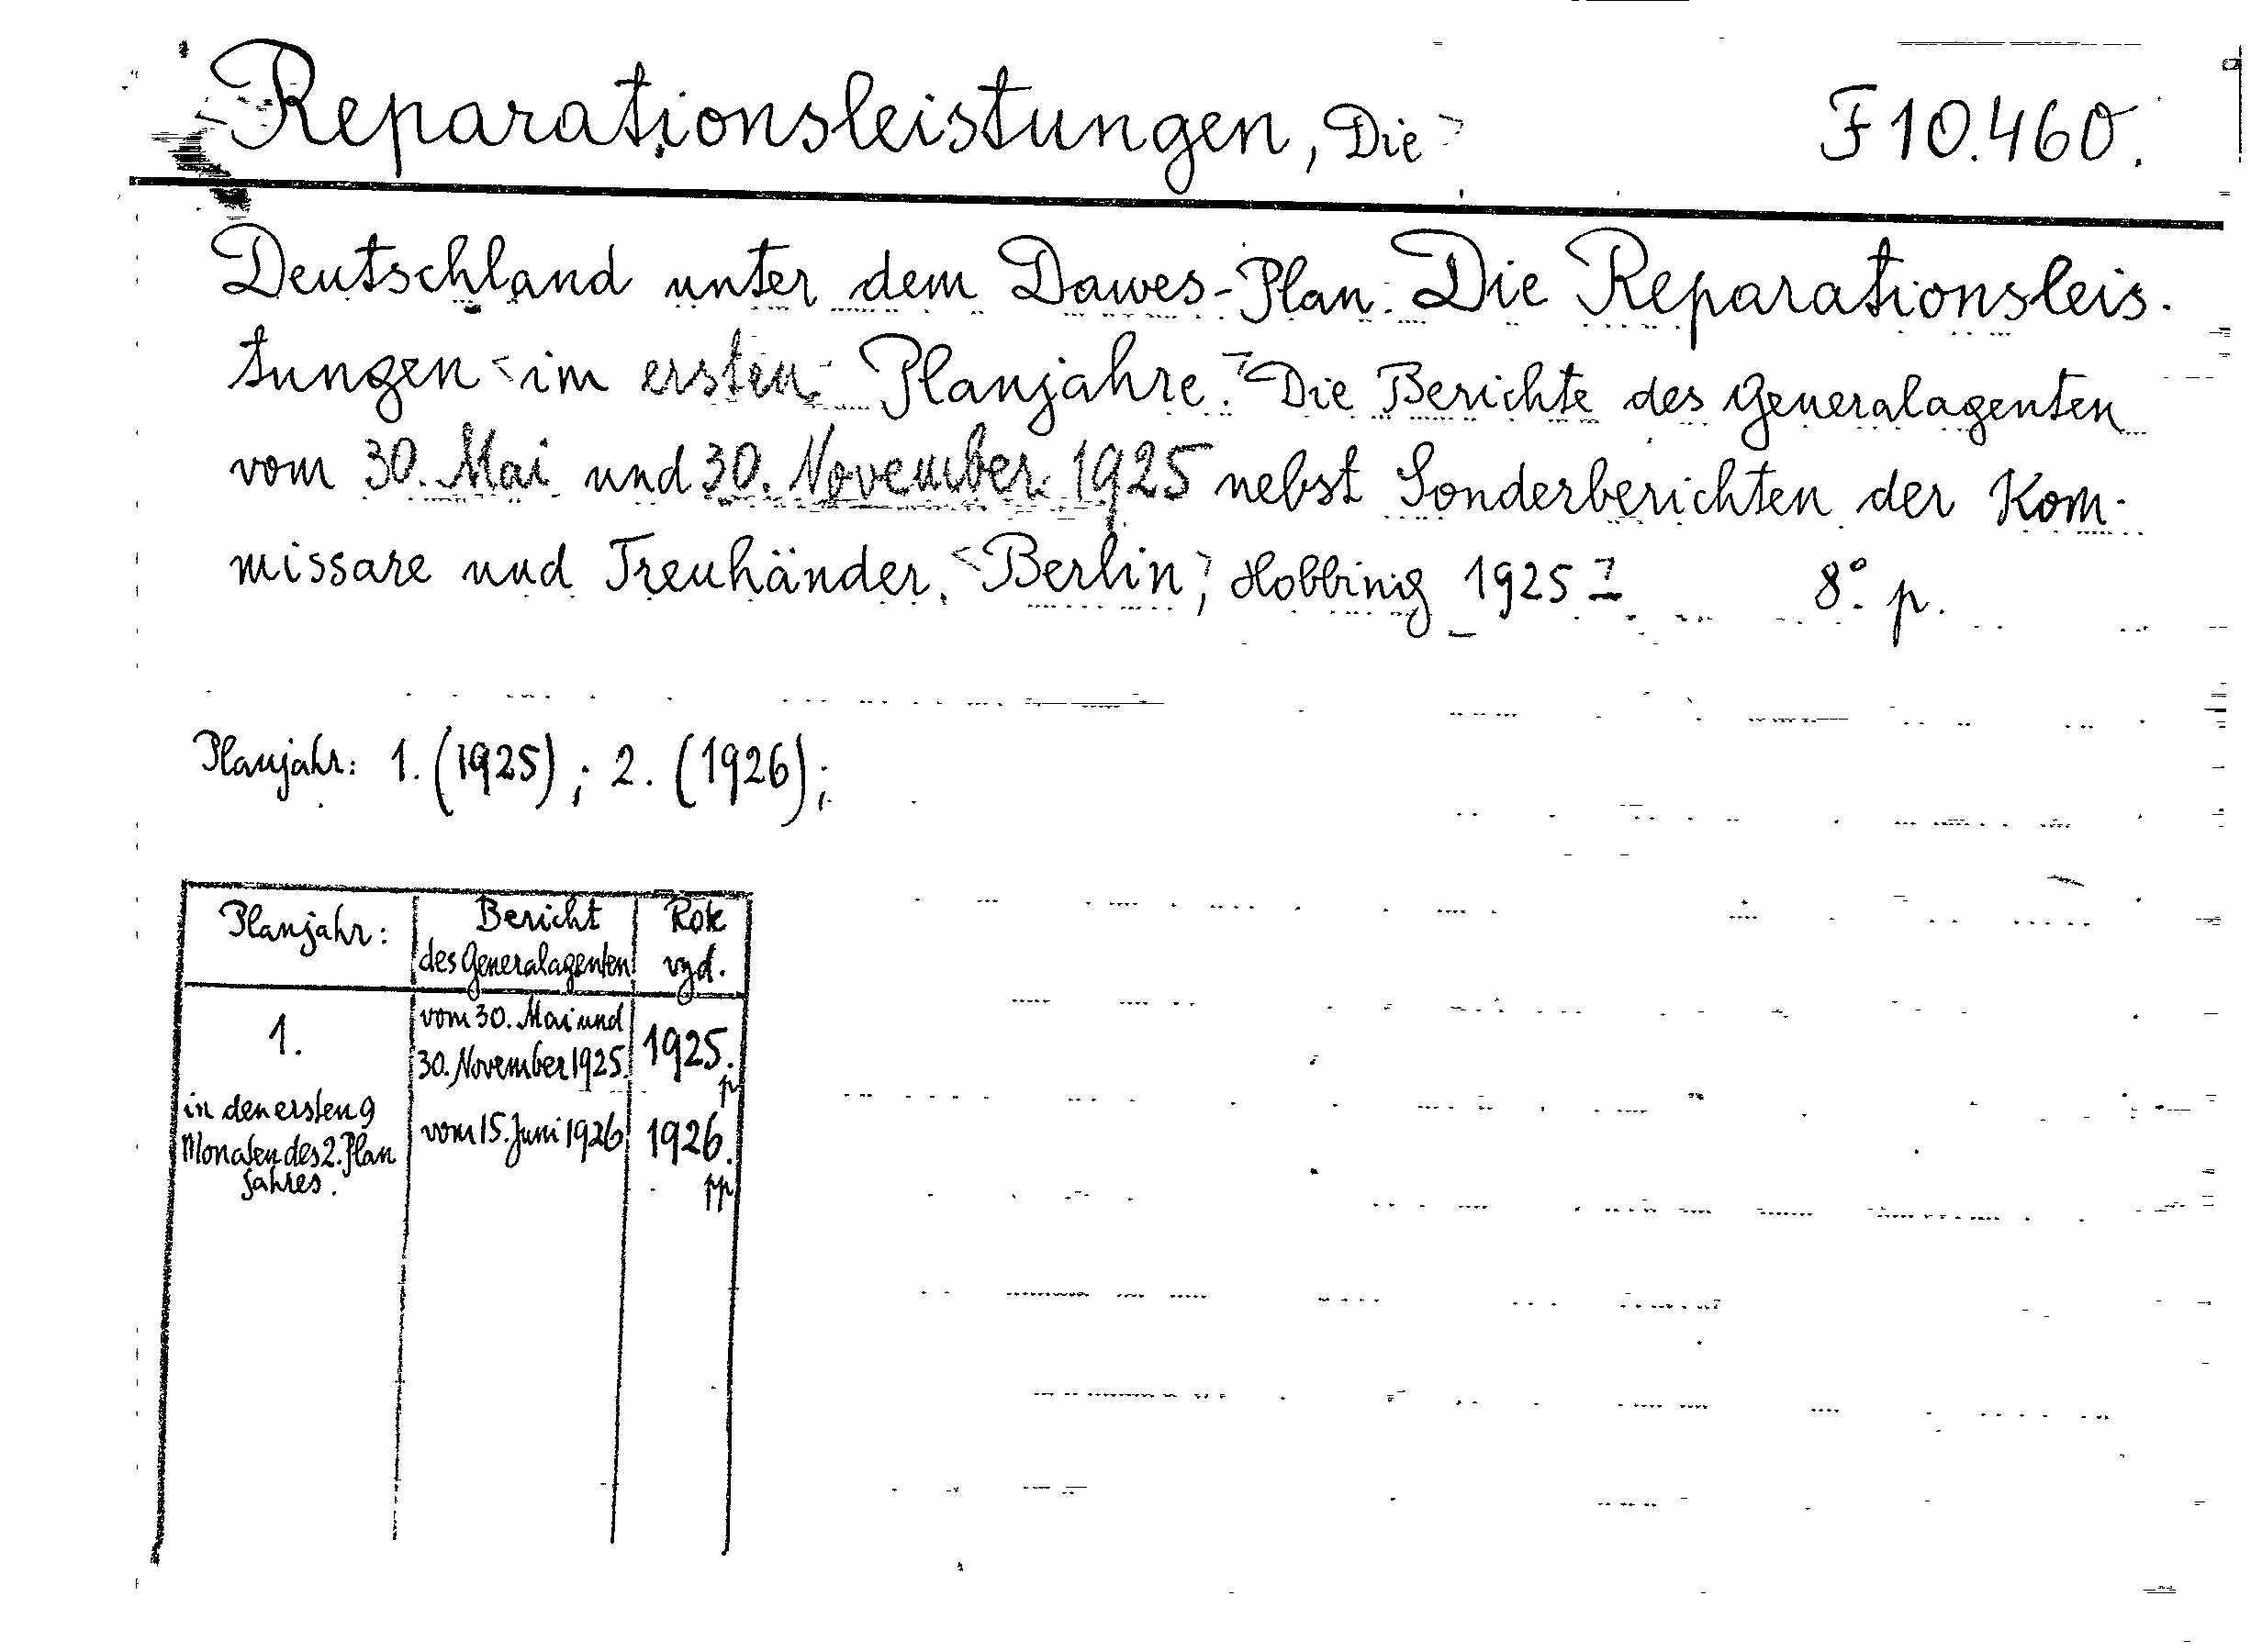 Reparationsleistungen, Die F 10.460.
Deutschland unter dem Dawes-Plan. Die Reparationsleis-
tungen <im ersten Planjahre.> Die Berichte des Generalagenten
vom 30. Mai und 30. November 1925 nebst Sonderberichten der Kom-
missare und Treuhänder. <Berlin,> Hobbing 1925 8° p.
Planjahr: 1. (1925); 2. (1926);
Planjahr: Bericht Rok
des Generalagenten vyd.
1. vom 30. Mai und 1925.
30. November 1925. p
in den ersten 9 vom 15. Juni 1926 1926.
Monaten des 2. Plan pp
jahres.